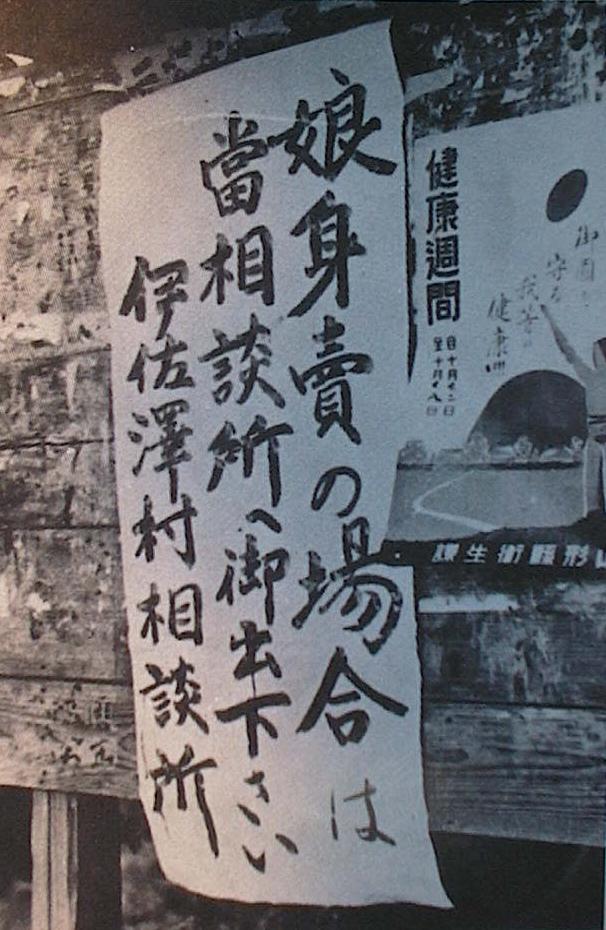 娘身賣の場合は
當相談所へ御出下さい
伊佐澤村相談所
健康週間
自十月十二日
至十月十八日
御国を
守る
我等の
健康
山形縣衛生課